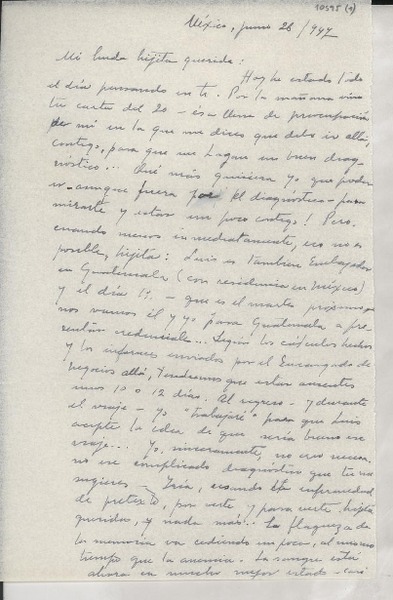 10595 (1)
México, junio 26/947
Mi linda hijita querida:
Hoy he estado todo
el día pensando en ti. Por la mañana vino
tu carta del 20 - esa llena de preocupación
de mí en la que me dices que debo ir allá,
contigo, para que me hagan un buen diag-
nóstico... Qué más quisiera yo que poder
ir - aunque fuera por el diagnóstico - para
mirarte y estar un poco contigo! Pero,
cuando menos inmediatamente, eso no es
posible, hijita: Luis es también Embajador
en Guatemala (con residencia en México)
y el día 1º. - que es el martes próximo
nos vamos él y yo para Guatemala a pre-
sentar credenciales... Según los cálculos hechos
y los informes enviados por el Encargado de
Negocios allá, tendremos que estar ausentes
unos 10 o 12 días. Al regreso - y durante
el viaje - yo "trabajaré" para que Luis
acepte la idea de que sería bueno ese
viaje... Yo, sinceramente, no creo necesa-
rio ese complicado diagnóstico que tú me
sugieres - Iría, usando la enfermedad
de pretexto, por verte y para verte, hijita
querida, y nada más... La flaqueza de
la memoria va cediendo un poco, al mismo
tiempo que la anemia. La sangre está
ahora en mucho mejor estado - casi